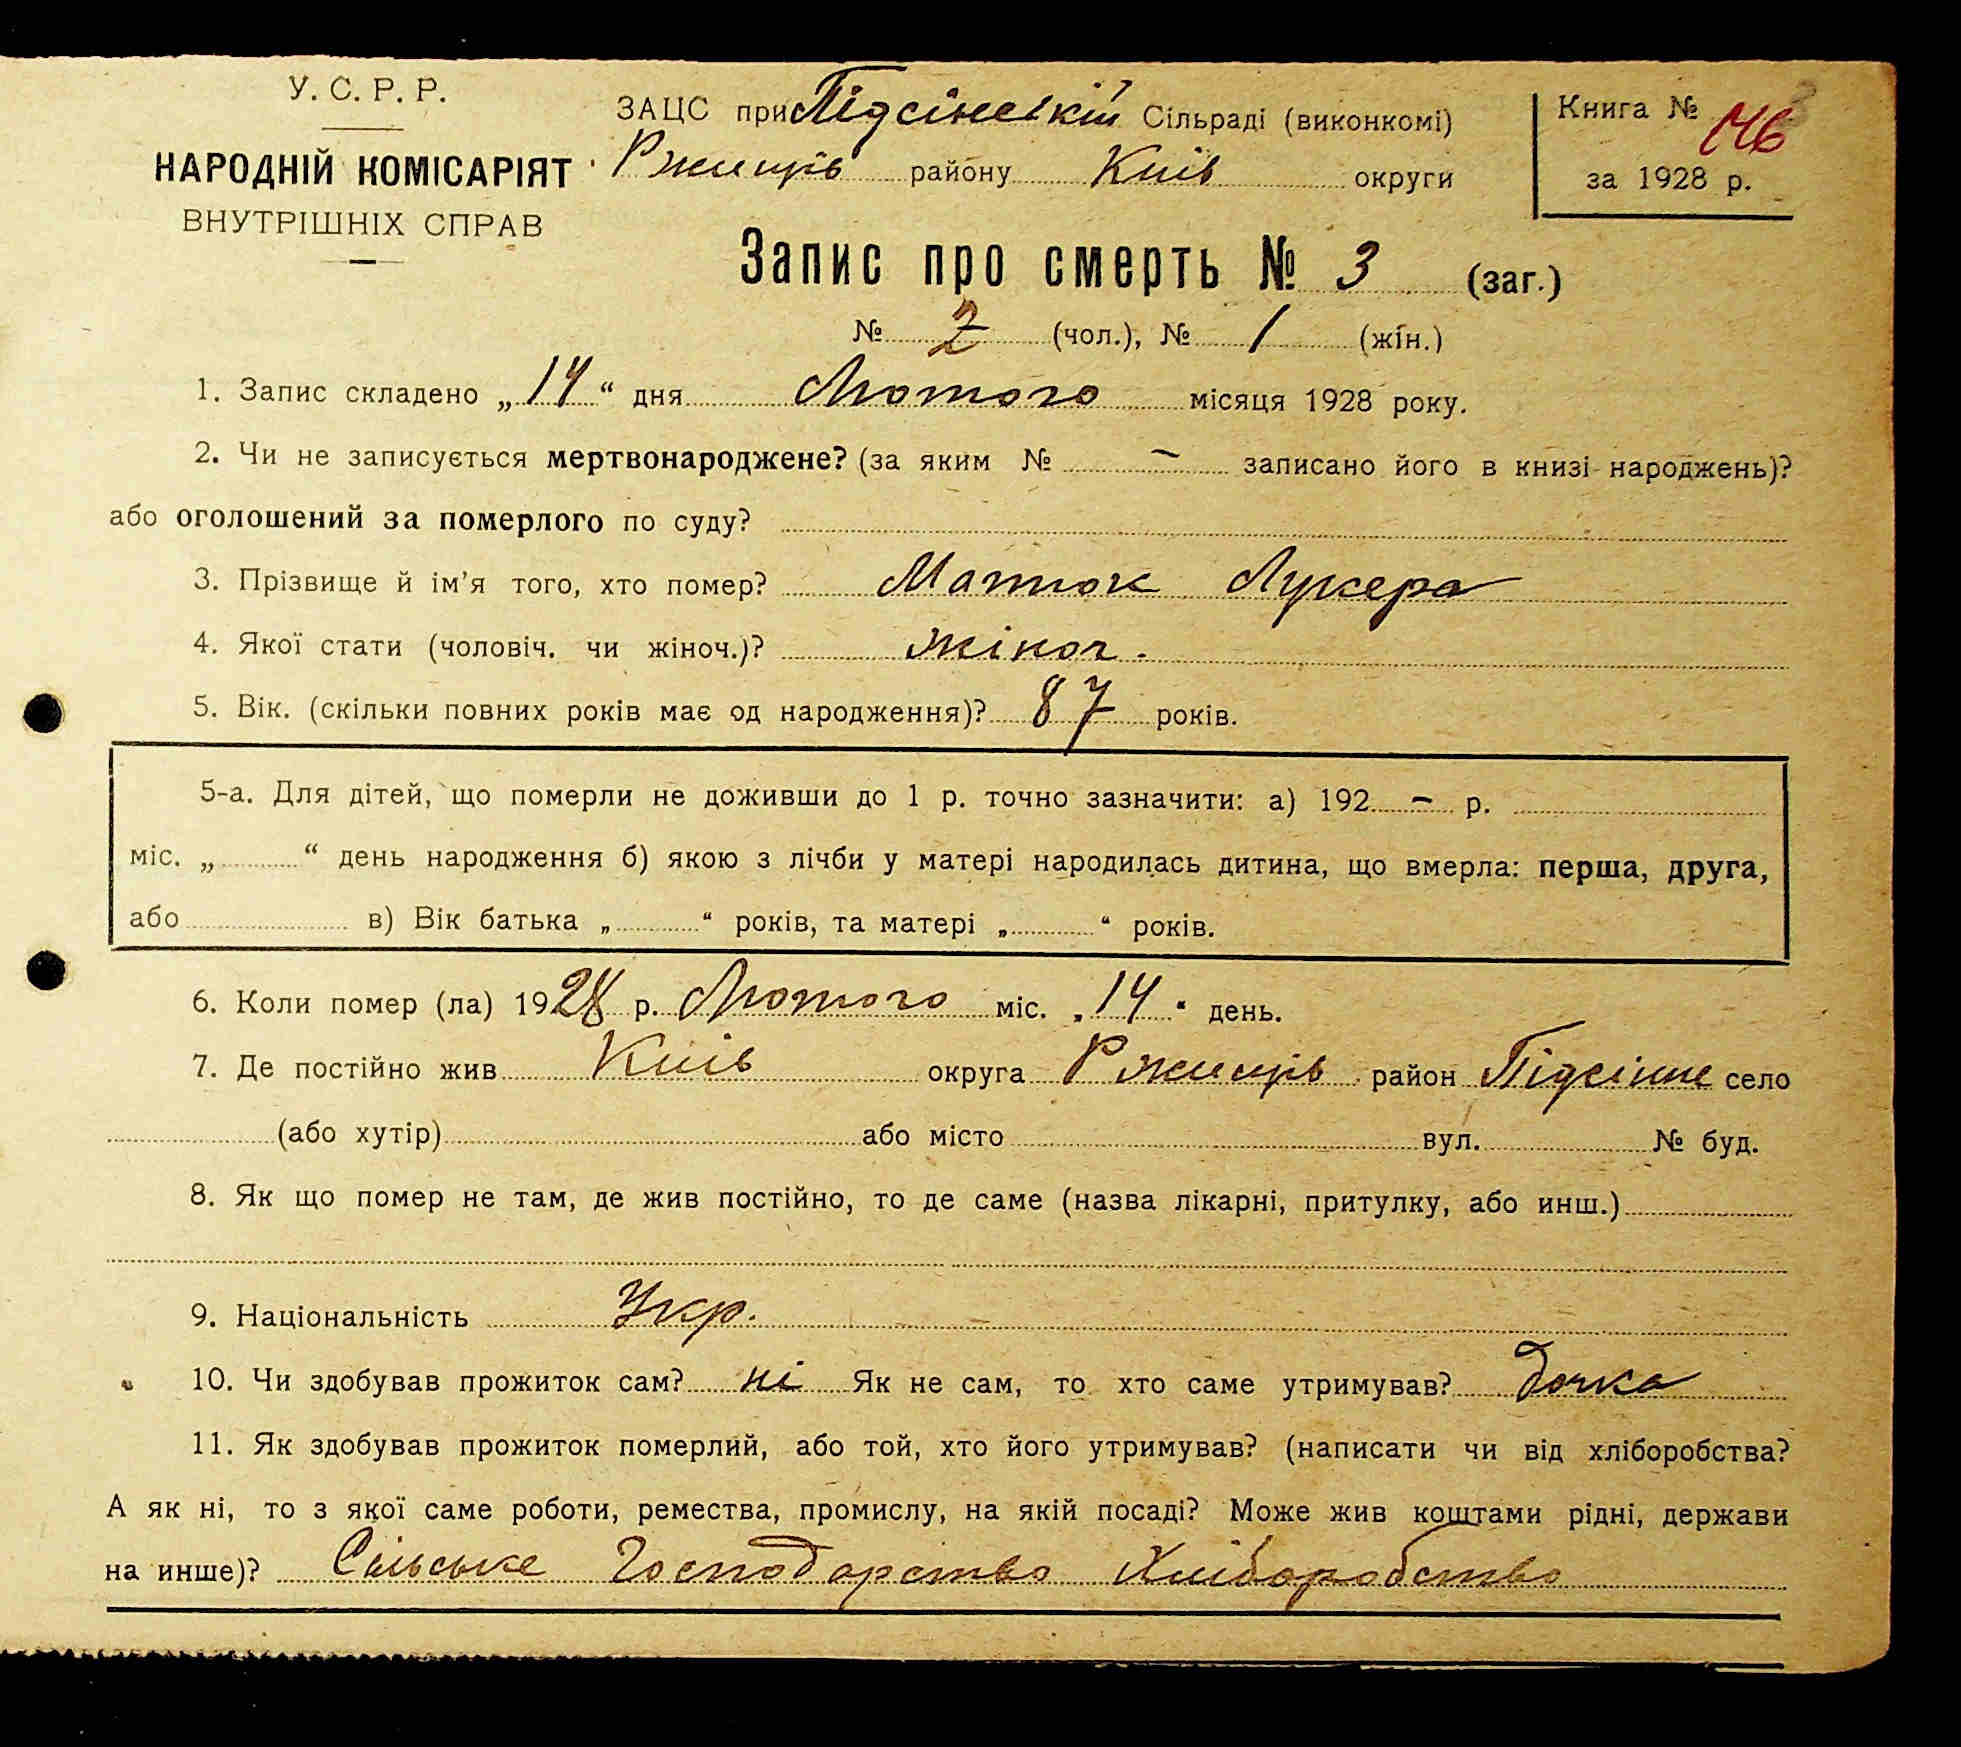 У. С. Р. Р.
НАРОДНІЙ КОМІСАРІЯТ
ВНУТРІШНІХ СПРАВ
ЗАЦС при Підсінській Сільраді (виконкомі)
Ржищів району Київ округи
Книга №
за 1928 р.
Запис про смерть № 3 (заг.)
№ 2 (чол.), № 1 (жін.)
1. Запис складено „14“ дня Лютого місяця 1928 року.
2. Чи не записується мертвонароджене? (за яким № – записано його в книзі народжень)?
або оголошений за померлого по суду?
3. Прізвище й ім'я того, хто помер? Матюк Лукера
4. Якої стати (чоловіч. чи жіноч.)? жіноч.
5. Вік. (скільки повних років має од народження)? 87 років.
5-а. Для дітей, що померли не доживши до 1 р. точно зазначити: а) 192 – р.
міс. „ “ день народження б) якою з лічби у матері народилась дитина, що вмерла: перша, друга,
або в) Вік батька „ “ років, та матері „ “ років.
6. Коли помер (ла) 1928 р. Лютого міс. „14“ день.
7. Де постійно жив Київ округа Ржищів район Підсінне село
(або хутір) або місто вул. № буд.
8. Як що помер не там, де жив постійно, то де саме (назва лікарні, притулку, або инш.)
9. Національність Укр.
10. Чи здобував прожиток сам? ні Як не сам, то хто саме утримував? дочка
11. Як здобував прожиток померлий, або той, хто його утримував? (написати чи від хліборобства?
А як ні, то з якої саме роботи, ремества, промислу, на якій посаді? Може жив коштами рідні, держави
на инше)? Сільське Господарство Хліборобство